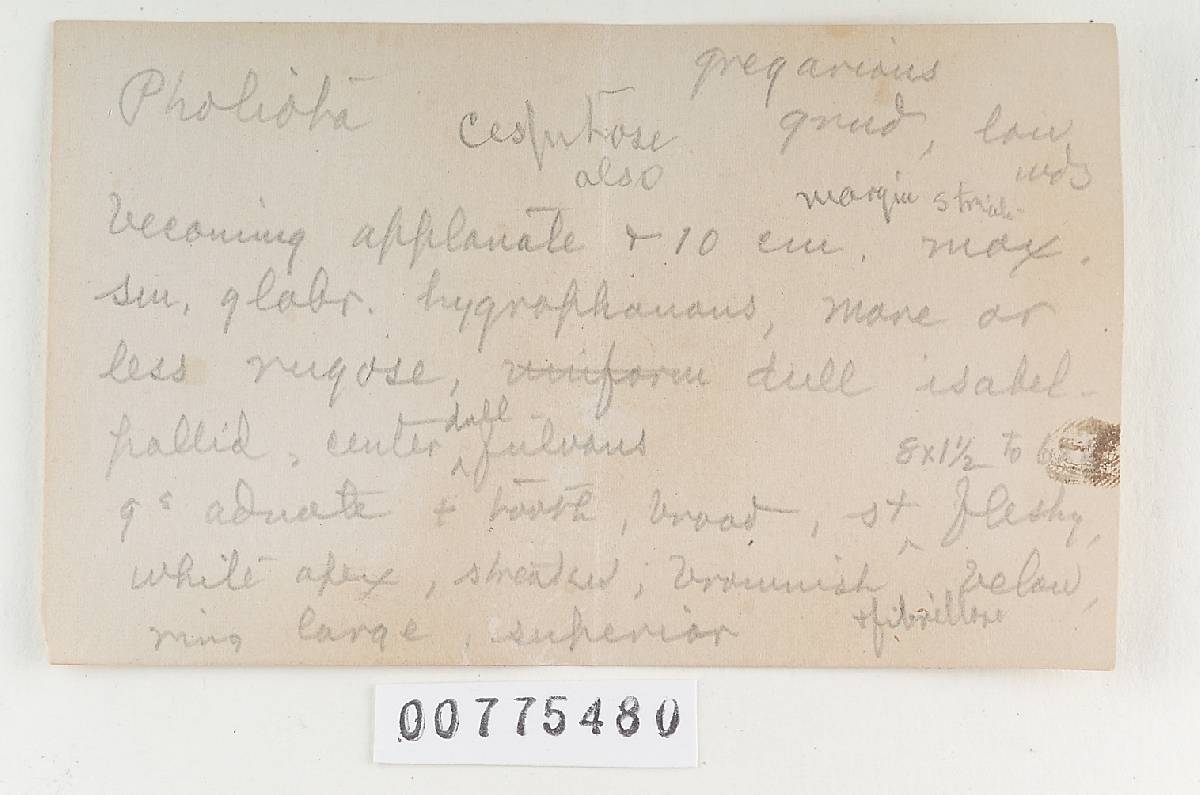 Pholiota gregarious
cespitose grnd, low
also wds
margin striate
becoming applanate + 10 cm. max.
sm. glabr. hygrophanous, more or
less rugose, uniform dull isabel-
pallid, center dull fulvous 8x1½ to 6
gs adnate + tooth, broad, st fleshy,
white apex, streaked, brownish below,
ring large, superior +fibrillose
00775480